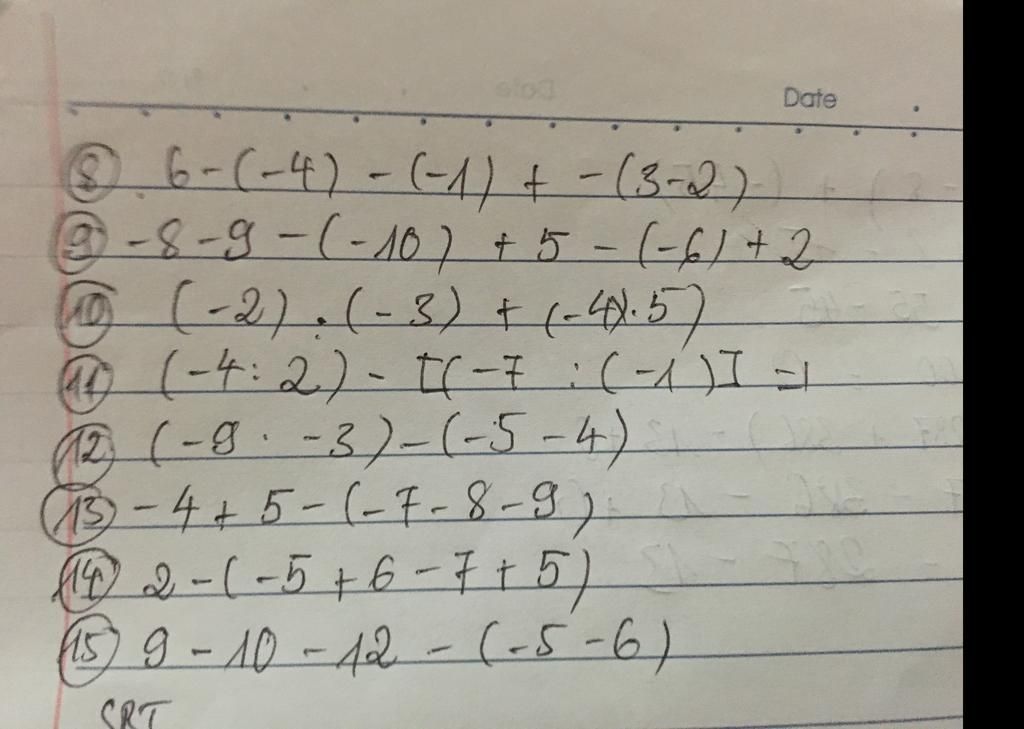 Date
⑧ 6-(-4) - (-1) + -(3-2)
⑨ -8-9-(-10) + 5 -(-6)+2
⑩ (-2).(-3) + (-4).5)
⑪ (-4:2) - [(-7 :(-1)] -1
⑫ (-9 . -3)-(-5-4)
⑬ -4+5-(-7-8-9)
⑭ 2-(-5+6-7+5)
⑮ 9-10-12-(-5-6)
SRT